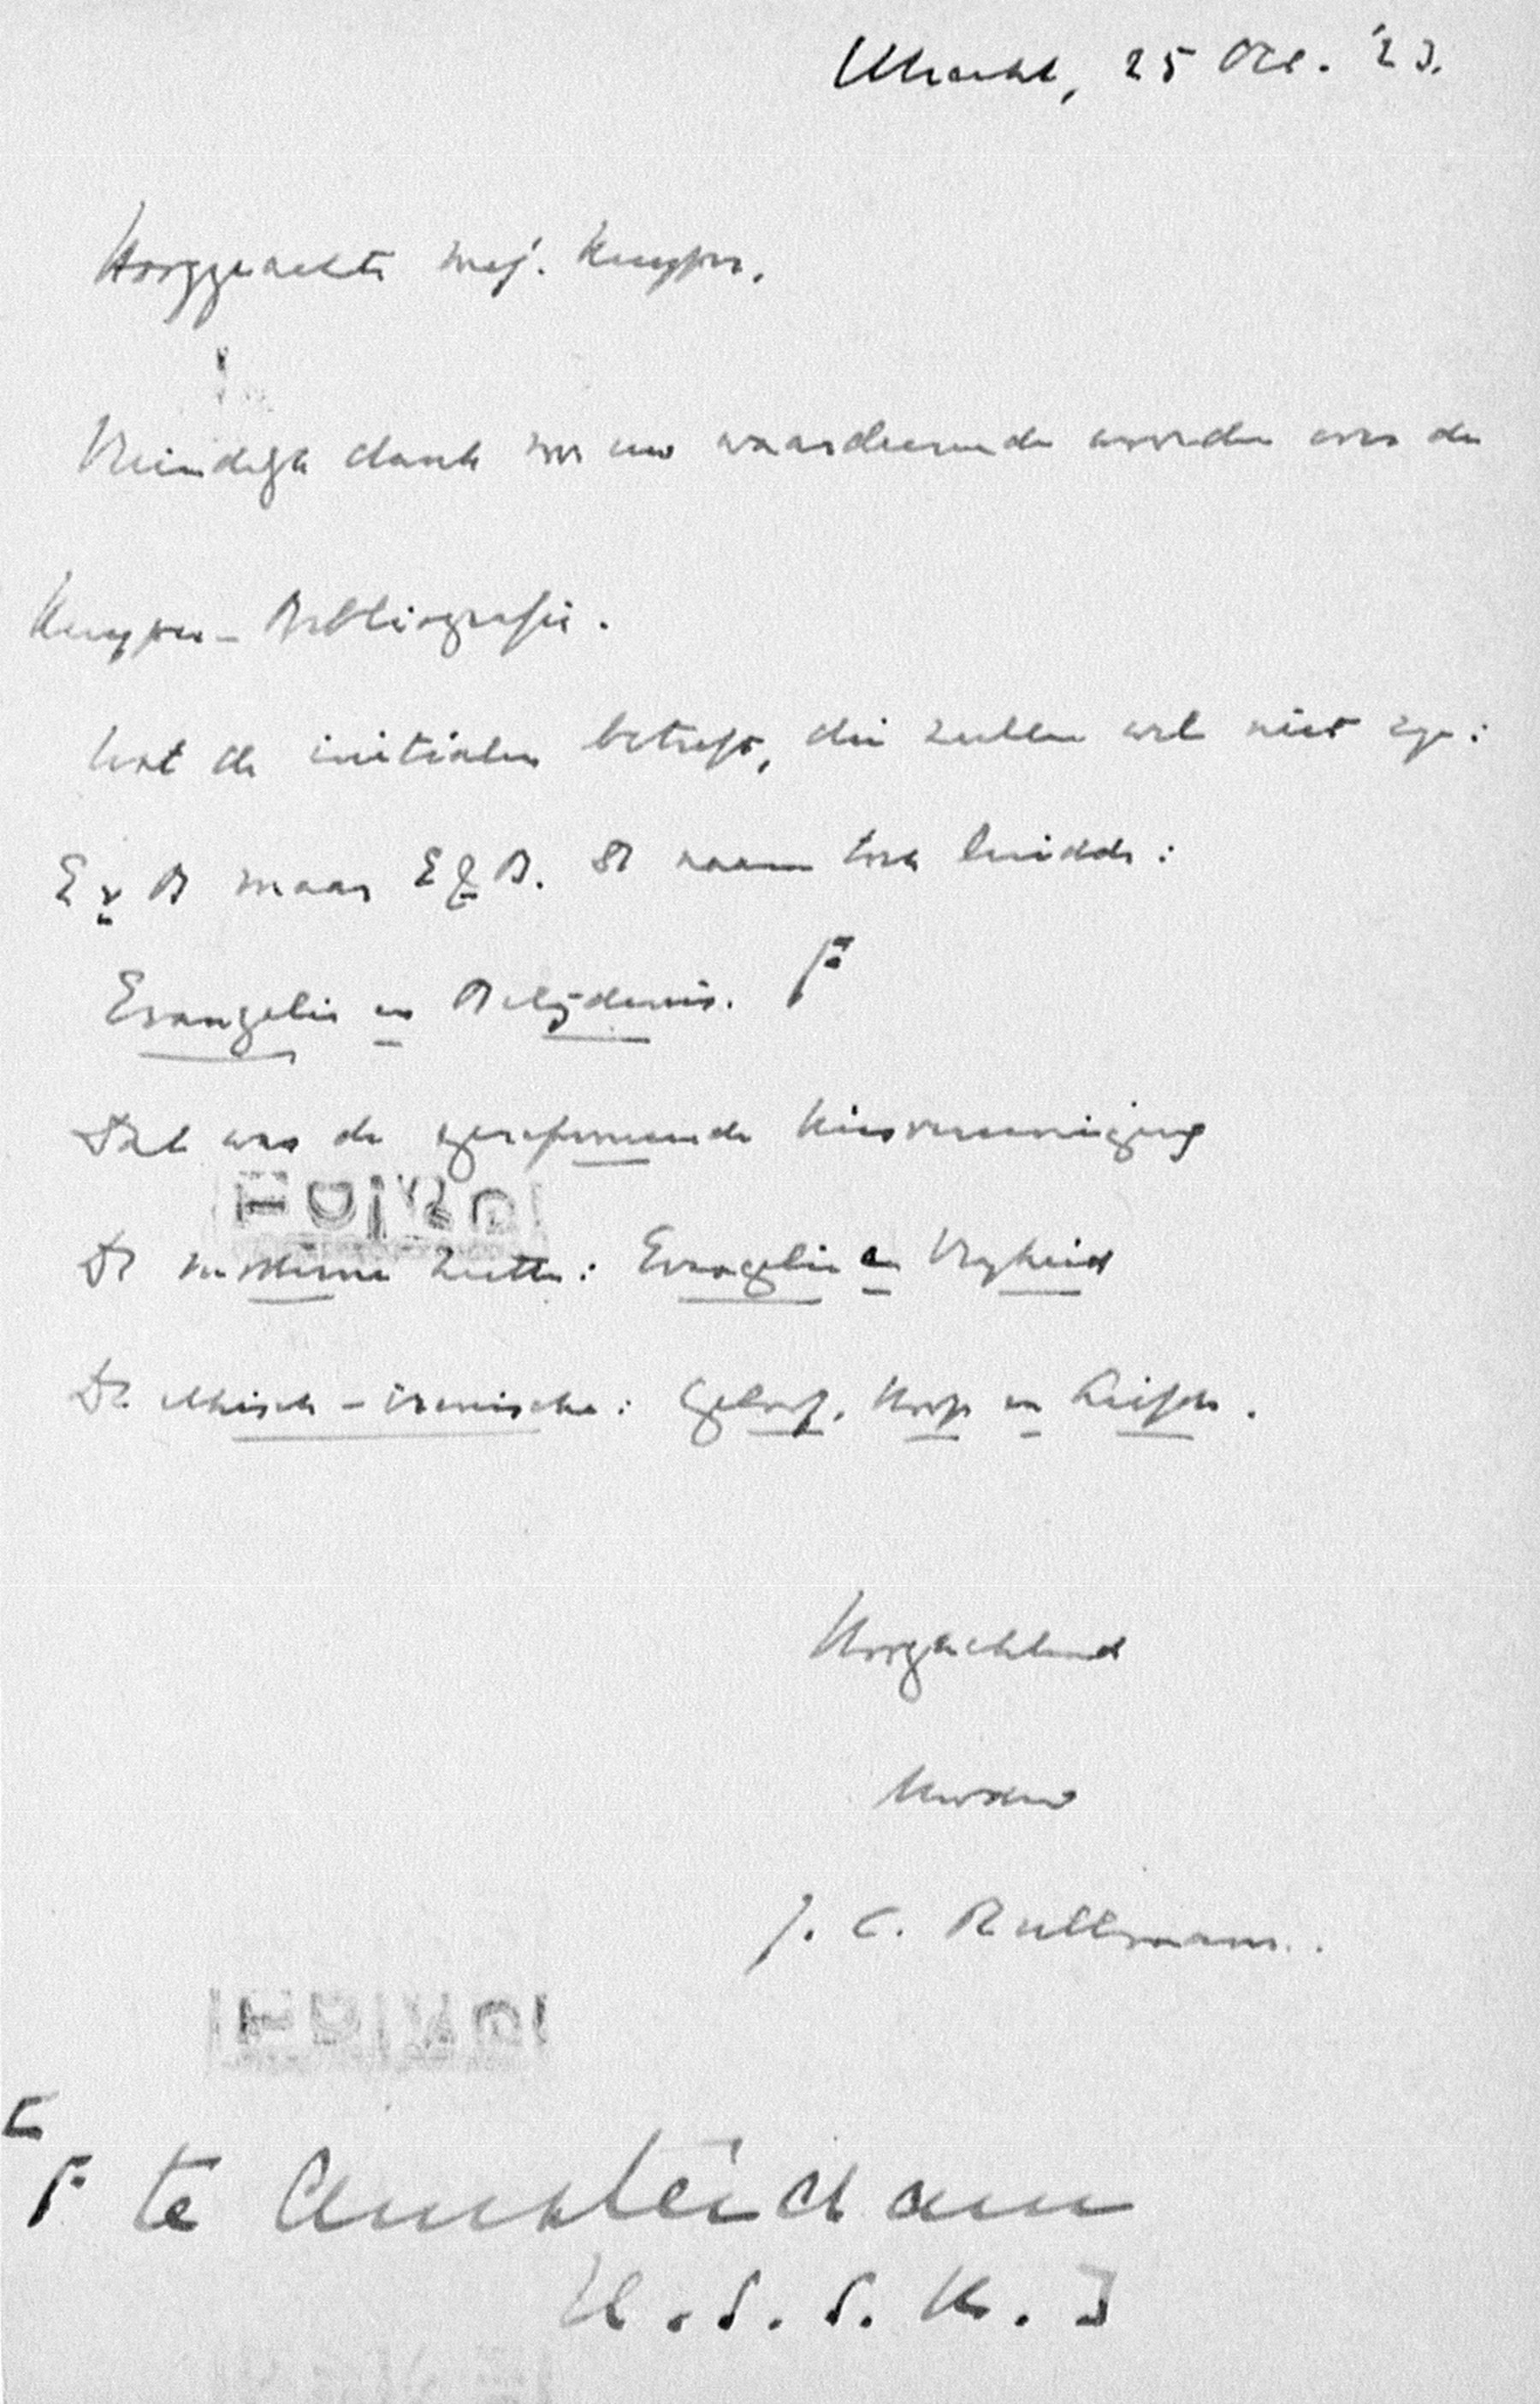 Utrecht, 25 Oct. '23.
Hooggeachte Mej. Kuyper.
Vriendelijk dank voor uw waardeerende woorden over de
Kuyper-Bibliografie.
Wat de initialen betreft, die zullen wel niet zijn:
E v B maar E & B. De naam toch luidde:
Evangelie en Belijdenis. F
Dat was de gereformeerde kiesvereeniging
De moderne heette: Evangelie en Vrijheid
De ethisch-irenische: Geloof, Hoop en Liefde.
Hoogachtend
Uw dw
J. C. Rullmann.
[F te Amsterdam
H. S. S. K. ]